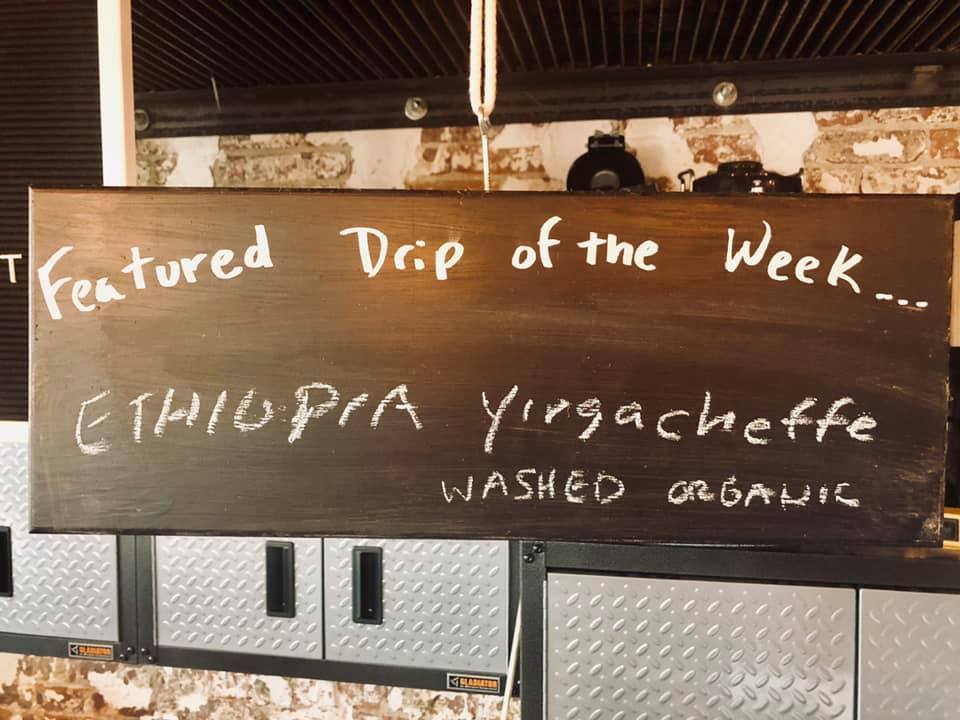 T
Featured Drip of the Week....
ETHIOPIA Yirgacheffe
WASHED ORGANIC
GLADIATOR
GLADIATOR